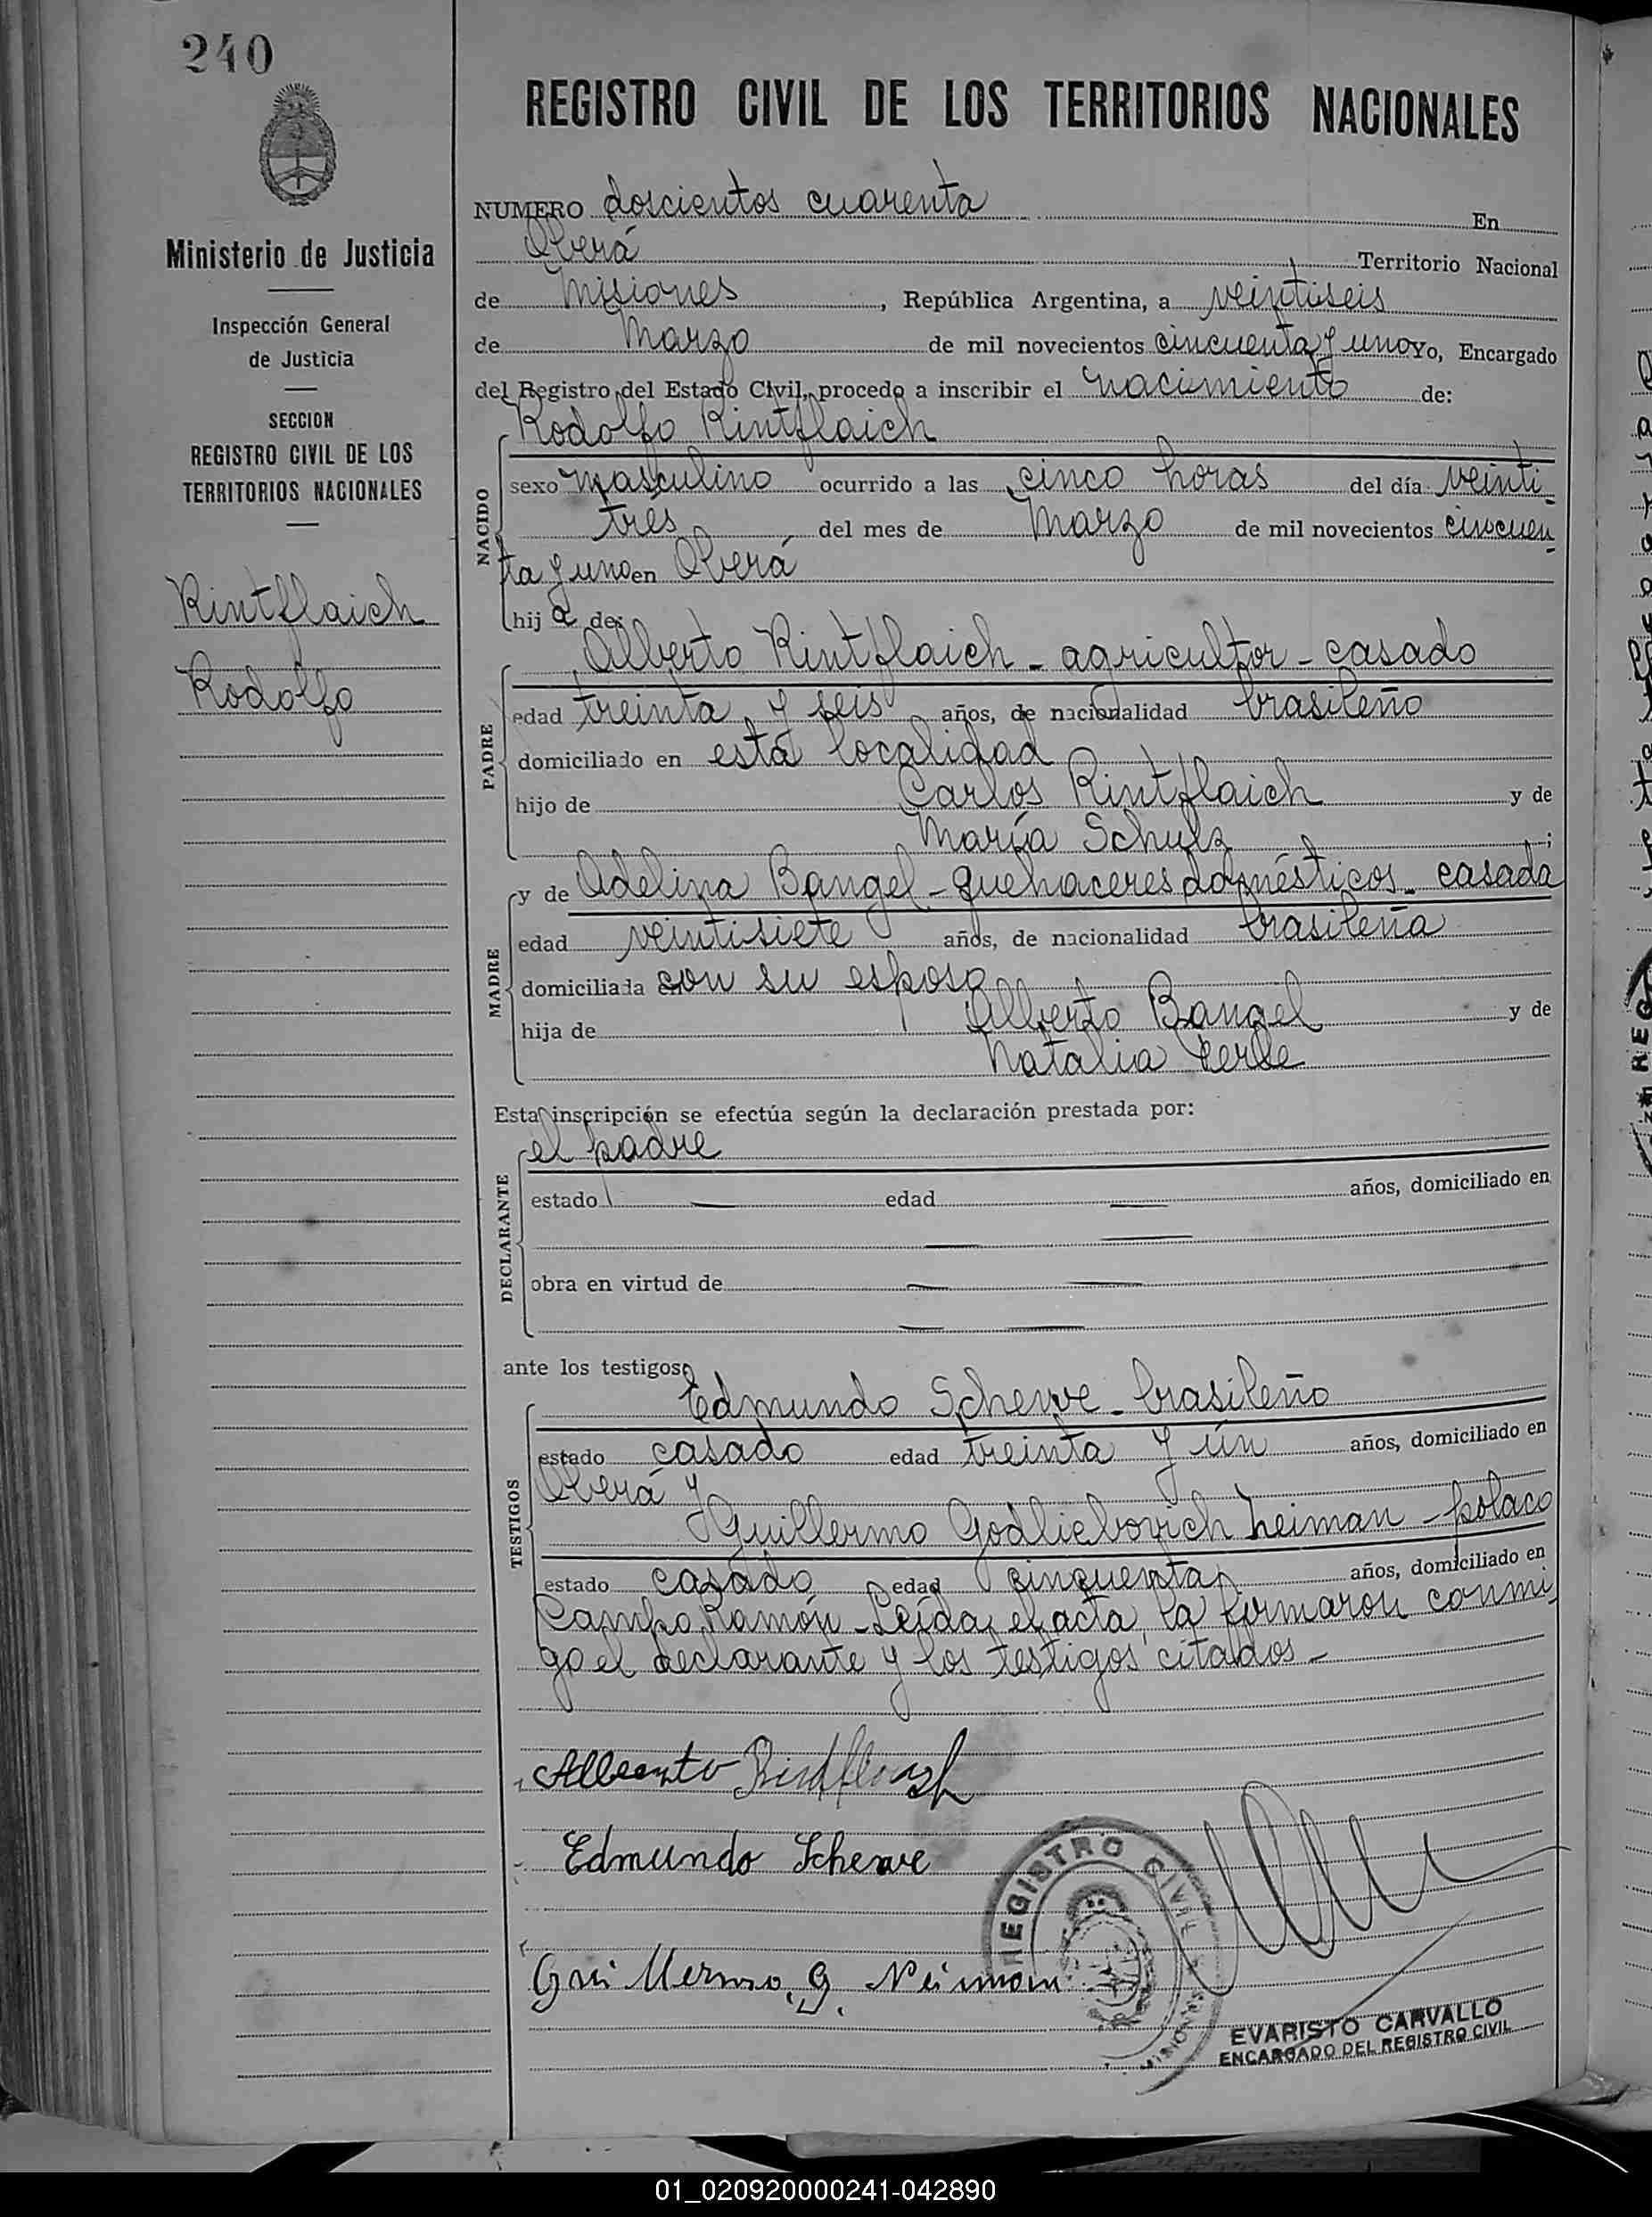 240
REGISTRO CIVIL DE LOS TERRITORIOS NACIONALES
Ministerio de Justicia
Inspección General
de Justicia
SECCION
REGISTRO CIVIL DE LOS
TERRITORIOS NACIONALES
Rintflaich
Rodolfo
NUMERO doscientos cuarenta En
Oberá Territorio Nacional
de Misiones, República Argentina, a veintiseis
de Marzo de mil novecientos cincuenta y uno Yo, Encargado
del Registro del Estado Civil, procedo a inscribir el nacimiento de:
NACIDO
Rodolfo Rintflaich
sexo masculino ocurrido a las cinco horas del día veinti-
tres del mes de Marzo de mil novecientos cincuen-
ta y uno en Oberá
hijo de:
PADRE
Alberto Rintflaich - agricultor - casado
edad treinta y seis años, de nacionalidad brasileño
domiciliado en esta localidad
hijo de Carlos Rintflaich y de
María Schulz ;
MADRE
y de Adelina Bangel - quehaceres domésticos - casada
edad veintisiete años, de nacionalidad brasileña
domiciliada con su esposo
hija de Alberto Bangel y de
Natalia
Esta inscripción se efectúa según la declaración prestada por:
DECLARANTE
el padre
estado — edad — años, domiciliado en
— —
obra en virtud de — —
— —
ante los testigos:
TESTIGOS
Edmundo Scherve - brasileño
estado casado edad treinta y ún años, domiciliado en
Oberá y
Guillermo Godliebovich Neiman - polaco
estado casado edad cincuenta años, domiciliado en
Campo Ramón - Leída el acta, la firmaron conmi-
go el declarante y los testigos citados -
Alberto
Edmundo Scherve
Guillermo. G. Neimann
REGISTRO CIVIL
MISIONES
EVARISTO CARVALLO
ENCARGADO DEL REGISTRO CIVIL
01_020920000241-042890